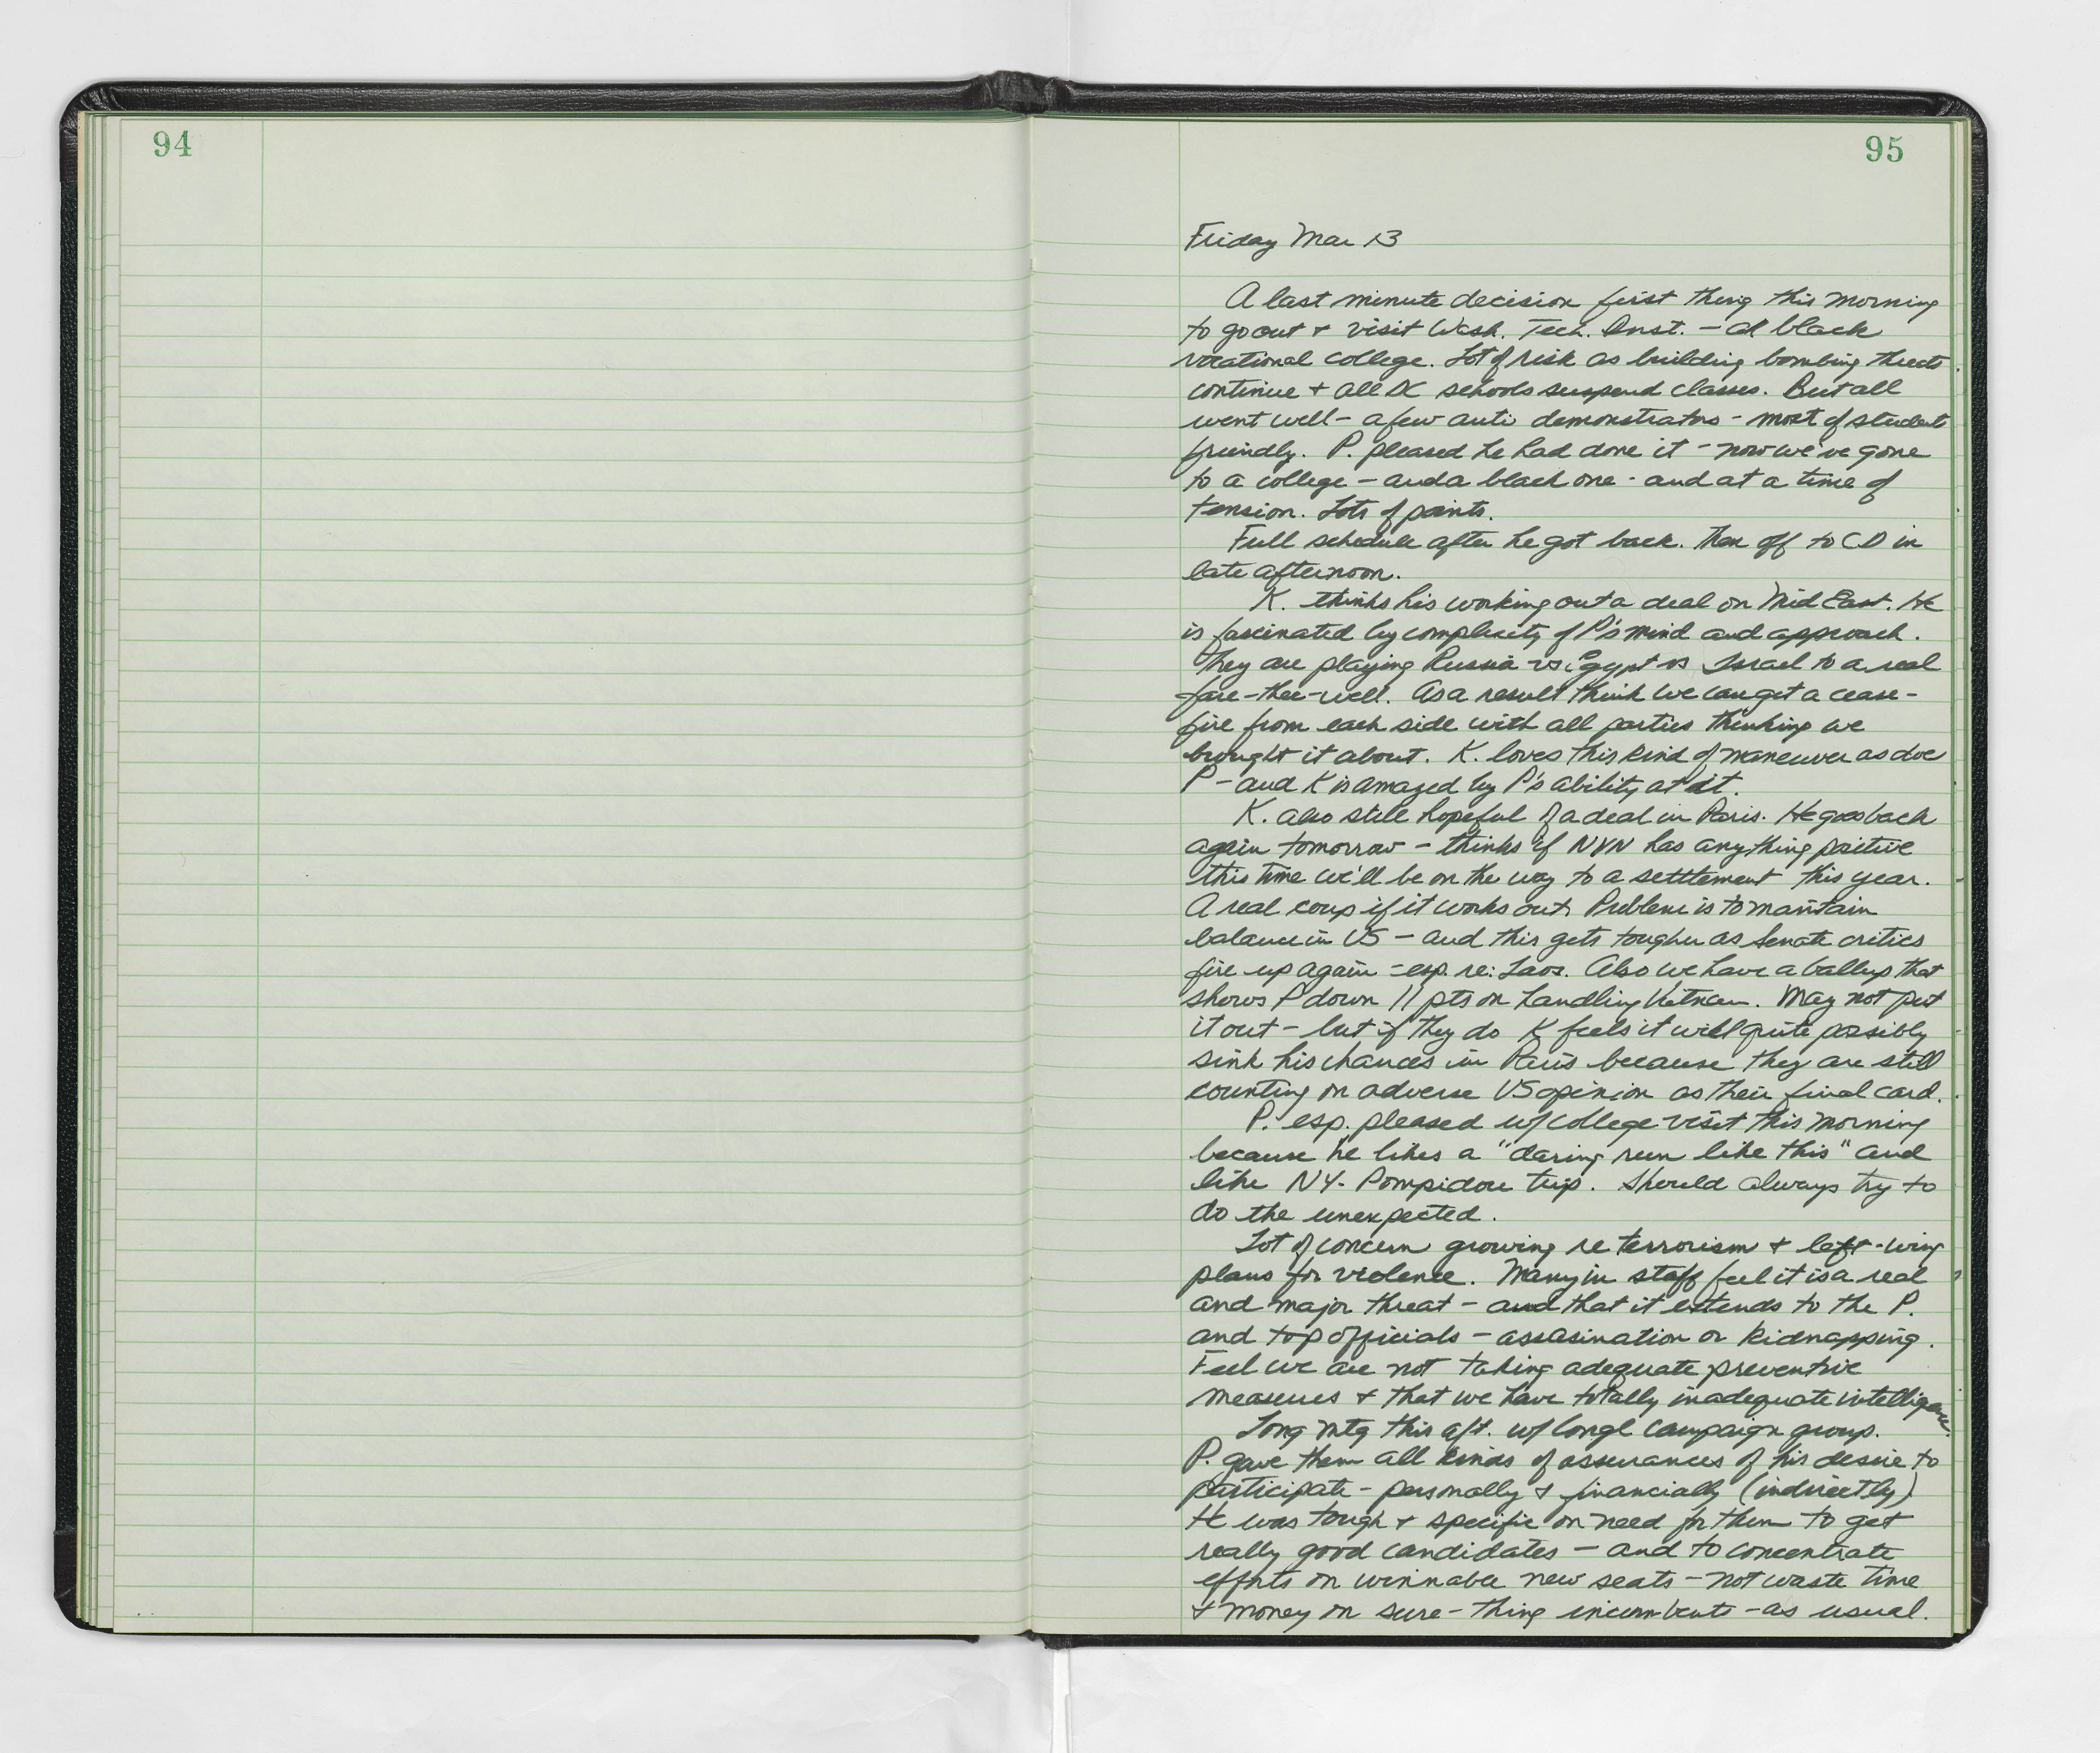 94
95
Friday Mar 13
A last minute decision first thing this morning
to go out & visit Wash. Tech. Inst. - a black
vocational college. Lot of risk as building bombing threats
continue & all DC schools suspend classes. But all
went well - a few anti demonstrators - most of students
friendly. P. pleased he had done it - now we've gone
to a college - and a black one - and at a time of
tension. Lots of points.
Full schedule after he got back. Then off to CD in
late afternoon.
K. thinks his working out a deal on Mid East. He
is fascinated by complexity of P's mind and approach.
They are playing Russia vs Egypt vs Israel to a real
fare-thee-well. As a result think we can get a cease-
fire from each side with all parties thinking we
brought it about. K. loves this kind of maneuver as doe
P - and K is amazed by P's ability at it.
K. also still hopeful of a deal in Paris. He goes back
again tomorrow - thinks if NVN has anything positive
this time we'll be on the way to a setttement this year.
A real coup if it works out. Problem is to maintain
balance in US - and this gets tougher as Senate critics
fire up again - esp. re: Laos. Also we have a Gallup that
shows P down 11 pts on handling Vietnam. May not put
it out - but if they do K feels it will quite possibly
sink his chances in Paris because they are still
counting on adverse US opinion as their final card.
P. esp. pleased w/ college visit this morning
because he likes a "daring run like this" and
like NY - Pompidou trip. Should always try to
do the unexpected.
Lot of concern growing re terrorism & left-wing
plans for violence. Many in staff feel it is a real
and major threat - and that it extends to the P.
and top officials - assasination or kidnapping.
Feel we are not taking adequate preventive
measures & that we have totally inadequate intelligence.
Long mtg this aft. w/ Congl campaign group.
P. gave them all kinds of assurances of his desire to
participate - personally & financially (indirectly)
He was tough & specific on need for them to get
really good candidates - and to concentrate
efforts on winnable new seats - not waste time
& money on sure-thing incumbents - as usual.